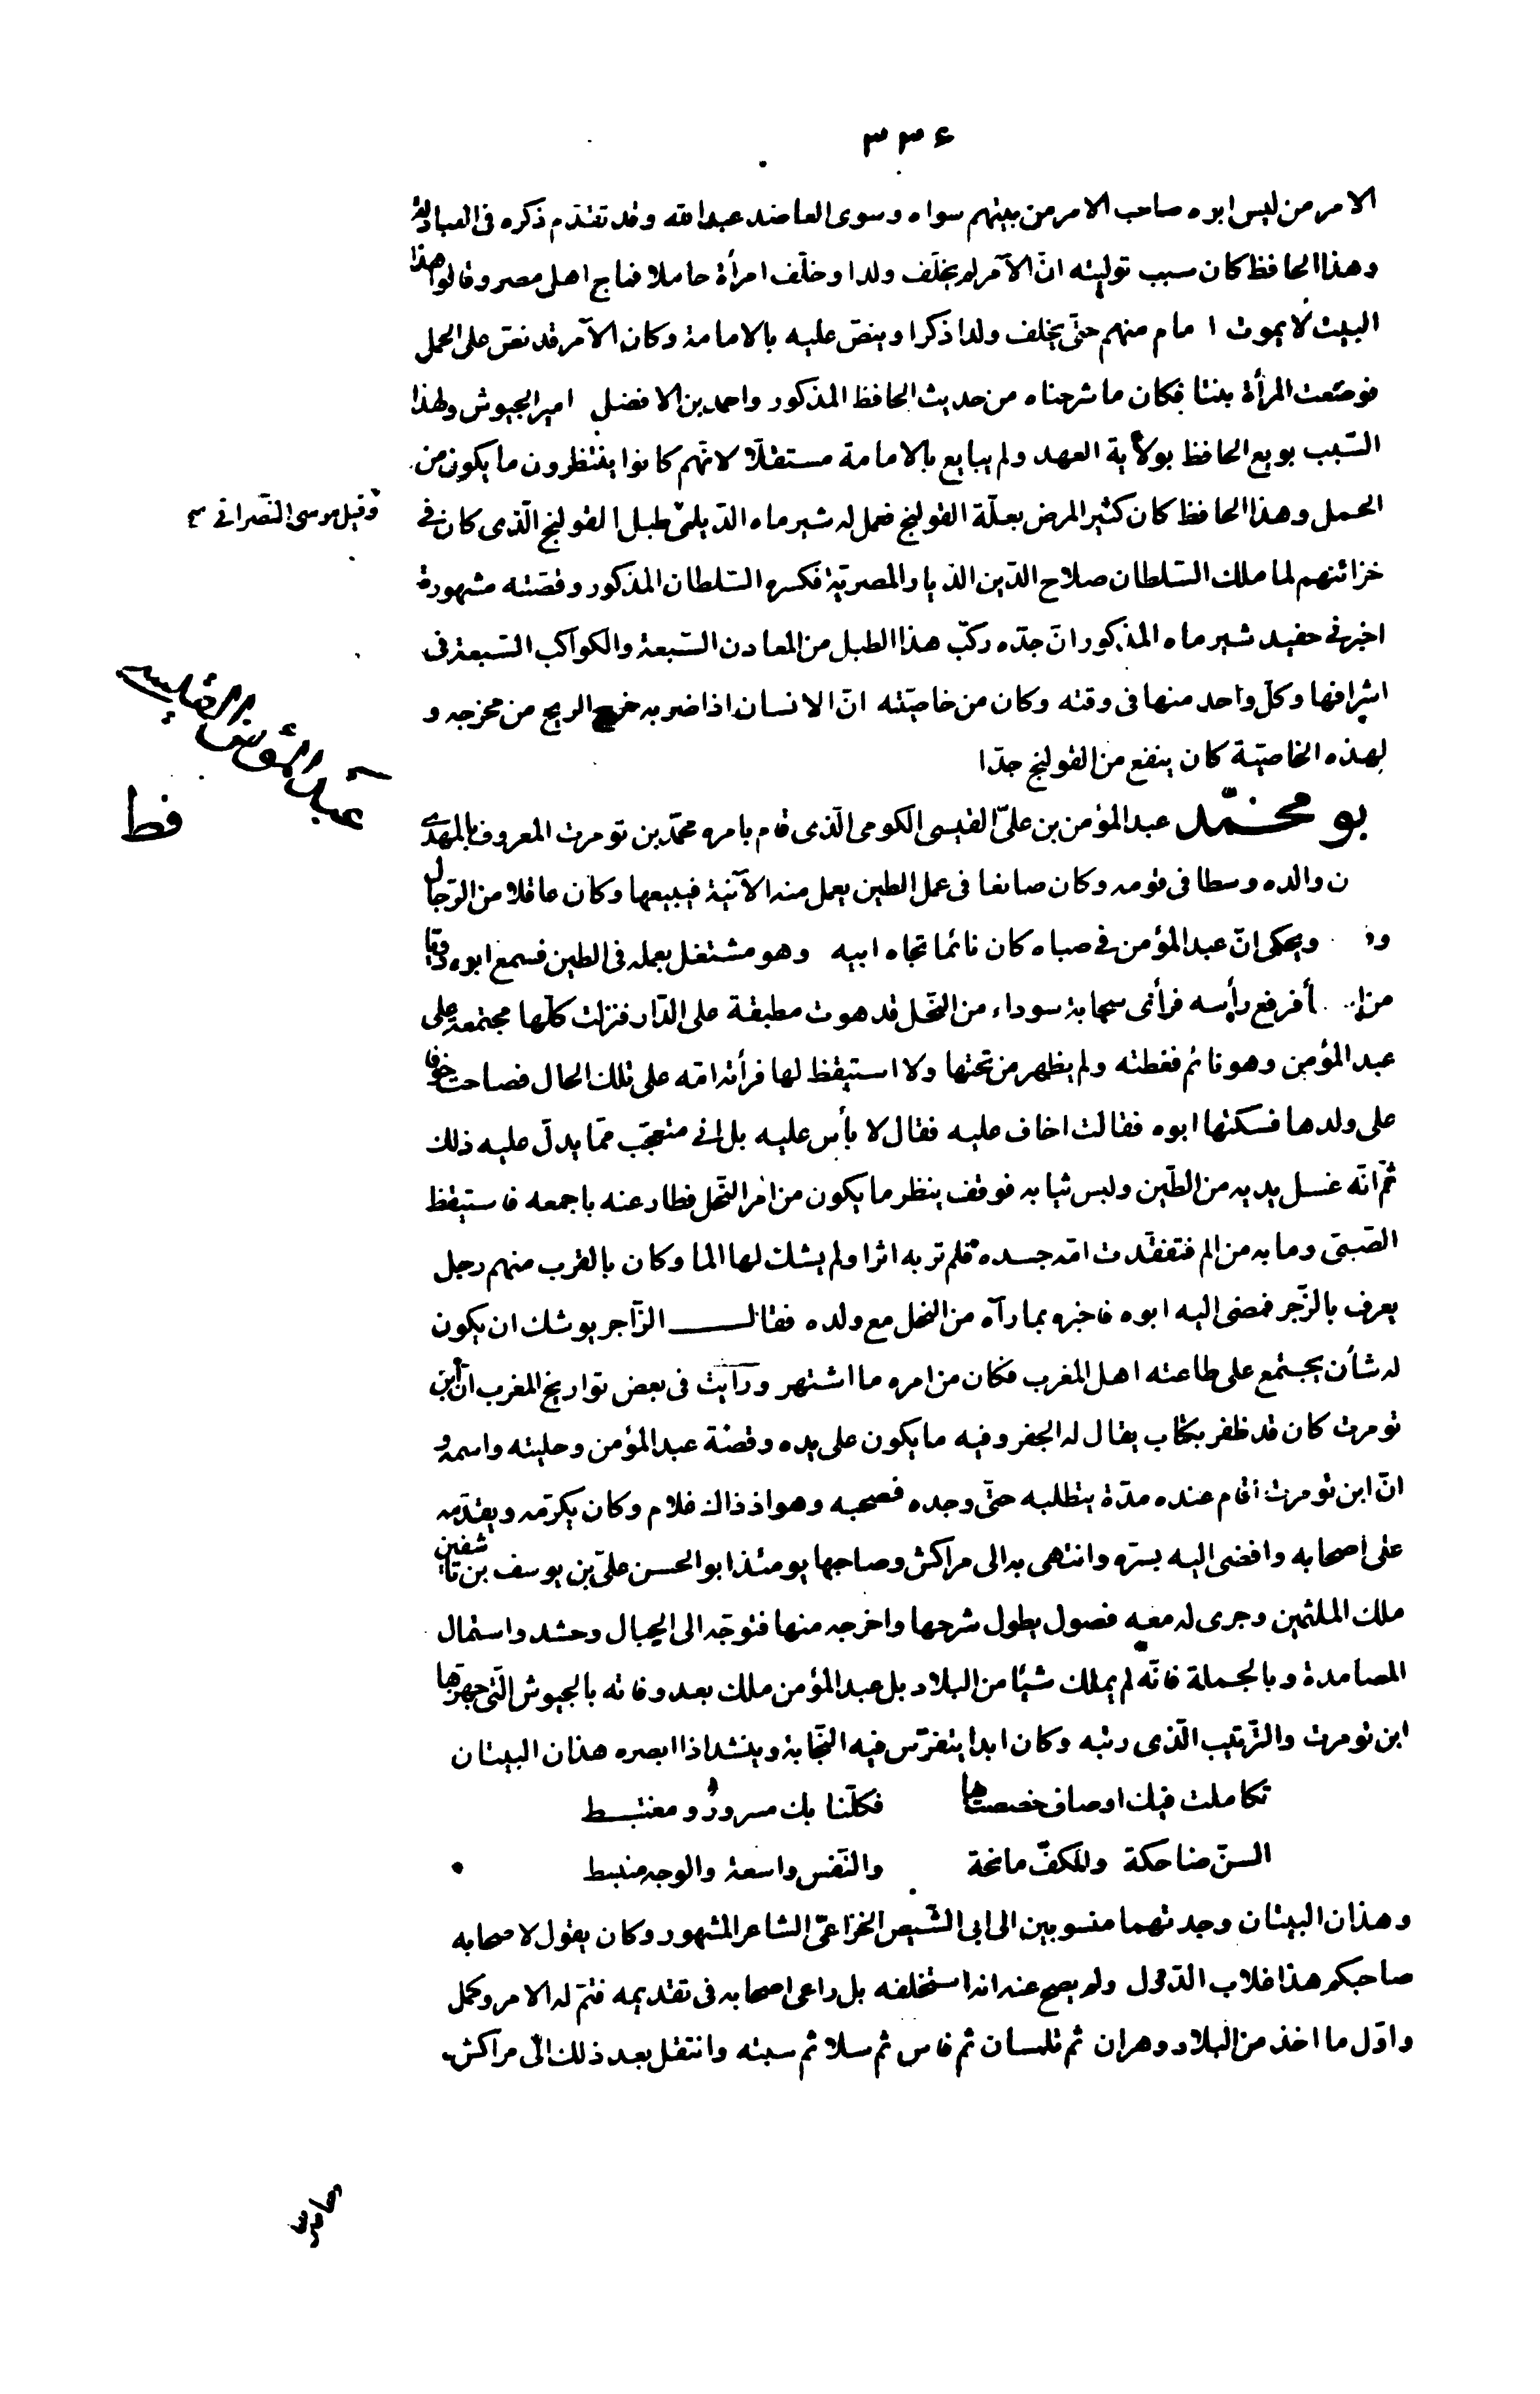 ٣٣٤
الامر من ليس ابوه صاحب الامر من بيتهم سواه وسوى العاضد عبدالله وقد تقدّم ذكره فى العبادلة
وهذا الحافظ كان سبب توليته انّ الآمر لم يخلّف ولدا وخلّف امرأة حاملا فماج اهل مصر وقالوا هذا
البيت لا يموت امام منهم حتّى يخلف ولدا ذكرا وينصّ عليه بالامامة وكان الآمر قد نصّ على الحمل
فوضعت المرأة بنتا فكان ما شرحناه من حديث الحافظ المذكور واحمد بن الافضل امير الجيوش ولهذا
السّبب بويع الحافظ بولاية العهد ولم يبايع بالامامة مستقلّا لانّهم كانوا ينتظرون ما يكون من
الحمل وهذا الحافظ كان كثير المرض بعلّة القولنج فعمل له شيرماه الدّيلمىّ طبل القولنج الّذى كان فى
وقيل موسى النّصرانى
خزائنهم لما ملك السّلطان صلاح الدّين الدّيار المصريّة فكسره السّلطان المذكور وقصّته مشهورة
اخبرنى حفيد شيرماه المذكور انّ جدّه ركّب هذا الطبل من المعادن السّبعة والكواكب السّبعة فى
اشرافها وكلّ واحد منها فى وقته وكان من خاصيّته انّ الانسان اذا ضربه خرج الريح من مخرجه و
لهذه الخاصيّة كان ينفع من القولنج جدّا
بو محمّد عبد المؤمن بن علىّ القيسى الكومى الّذى قام بامره محمّد بن تومرت المعروف بالمهدى
عبد المؤمن القيسى
قط
ن والده وسطا فى قومه وكان صانعا فى عمل الطين يعمل منه الآنية فيبيعها وكان عاقلا من الرّجال
و ويحكى انّ عبد المؤمن فى صباه كان نائما تجاه ابيه وهو مشتغل بعمله فى الطين فسمع ابوه دويّا
من ا فرفع رأسه فرأى سحابة سوداء من النّحل قد هوت مطبقة على الدّار فنزلت كلّها مجتمعة على
عبد المؤمن وهو نائم فغطته ولم يظهر من تحتها ولا استيقظ لها فرأته امّه على تلك الحال فصاحت خوفا
على ولدها فسكتها ابوه فقالت اخاف عليه فقال لا بأس عليه بل انى متعجّب ممّا يدلّ عليه ذلك
ثمّ انّه غسل يديه من الطّين ولبس ثيابه فوقف ينظر ما يكون من امر النّحل فطار عنه باجمعه فاستيقظ
الصّبىّ وما به من الم فتفقّدت امّه جسده فلم تر به اثرا ولم يشك لها الما وكان بالقرب منهم رجل
يعرف بالزّجر فمضى اليه ابوه فاخبره بما رآه من النحل مع ولده فقال الزّاجر يوشك ان يكون
له شأن يجتمع على طاعته اهل المغرب فكان من امره ما اشتهر ورأيت فى بعض تواريخ المغرب انّ ابن
تومرت كان قد ظفر بكتاب يقال له الجفر وفيه ما يكون على يده وقصّة عبد المؤمن وحليته واسمه و
انّ ابن تومرت اقام عنده مدّة يتطلبه حتّى وجده فصحبه وهو اذ ذاك غلام وكان يكرّمه ويقدّمه
على اصحابه وافضى اليه بسرّه وانتهى به الى مراكش وصاحبها يومئذ ابو الحسن علىّ بن يوسف بن تاشفين
ملك الملثمين وجرى له معه فصول يطول شرحها واخرجه منها فتوجّه الى الجبال وحشد واستمال
المصامدة وبالجملة فانّه لم يملك شيئا من البلاد بل عبد المؤمن ملك بعد وفاته بالجيوش الّتى جهزها
ابن تومرت والتّرتيب الّذى رتبه وكان ابدا يتفرّس فيه النّجابة وينشد اذا ابصره هذان البيتان
تكاملت فيك اوصاف خصصت بها فكلّنا بك مسرورٌ ومغتبط
السنّ ضاحكة والكفّ مانحة والنّفس واسعة والوجه منبسط
وهذان البيتان وجدتهما منسوبين الى ابى الشّيص الخزاعىّ الشاعر المشهور وكان يقول لاصحابه
صاحبكم هذا غلاب الدّول ولم يصح عنه انه استخلفه بل راعى اصحابه فى تقديمه فتمّ له الامر وكمل
واوّل ما اخذ من البلاد وهران ثم تلمسان ثم فاس ثم سلا ثم سبته وانتقل بعد ذلك الى مراكش